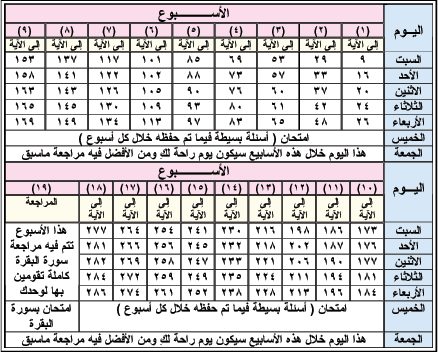 اليـوم الأســـبـــوع
(١) (٢) (٣) (٤) (٥) (٦) (٧) (٨) (٩)
إلى الآية إلى الآية إلى الآية إلى الآية إلى الآية إلى الآية إلى الآية إلى الآية إلى الآية
السبت ٩ ٢٩ ٥٣ ٦٩ ٨٥ ١٠١ ١١٧ ١٣٧ ١٥٣
الأحد ١٦ ٣٣ ٥٧ ٧٣ ٨٨ ١٠٢ ١٢٢ ١٤١ ١٥٨
الاثنين ٢٠ ٣٧ ٦٠ ٧٦ ٩٠ ١٠٥ ١٢٦ ١٤٣ ١٦٣
الثلاثاء ٢٤ ٤٢ ٦١ ٨٠ ٩٣ ١٠٩ ١٣٠ ١٤٥ ١٦٥
الأربعاء ٢٦ ٤٨ ٦٥ ٨٣ ٩٧ ١١٣ ١٣٤ ١٤٩ ١٦٩
الخميس امتحان ( أسئلة بسيطة فيما تم حفظه خلال كل أسبوع )
الجمعة هذا اليوم خلال هذه الأسابيع سيكون يوم راحة لك ومن الأفضل فيه مراجعة ماسبق
اليـوم الأســـبـــوع
(١٠) (١١) (١٢) (١٣) (١٤) (١٥) (١٦) (١٧) (١٨) (١٩)
إلى الآية إلى الآية إلى الآية إلى الآية إلى الآية إلى الآية إلى الآية إلى الآية إلى الآية المراجعة
السبت ١٧٣ ١٨٦ ١٩٨ ٢١٦ ٢٣٠ ٢٤١ ٢٥٤ ٢٦٤ ٢٧٧ هذا الأسبوع
الأحد ١٧٦ ١٨٧ ٢٠٢ ٢١٨ ٢٣٢ ٢٤٥ ٢٥٦ ٢٦٦ ٢٨١ تتم فيه مراجعة
الاثنين ١٧٧ ١٩٠ ٢٠٦ ٢٢١ ٢٣٣ ٢٤٧ ٢٥٨ ٢٦٩ ٢٨٢ سورة البقرة
الثلاثاء ١٨١ ١٩٤ ٢١١ ٢٢٤ ٢٣٥ ٢٤٩ ٢٥٩ ٢٧٢ ٢٨٤ كاملة تقومين
الأربعاء ١٨٤ ١٩٦ ٢١٣ ٢٢٨ ٢٥٢ ٢٦١ ٢٧٤ ٢٨٦ بها لوحدك
الخميس امتحان ( أسئلة بسيطة فيما تم حفظه خلال كل أسبوع ) امتحان بسورة البقرة
الجمعة هذا اليوم خلال هذه الأسابيع سيكون يوم راحة لك ومن الأفضل فيه مراجعة ماسبق